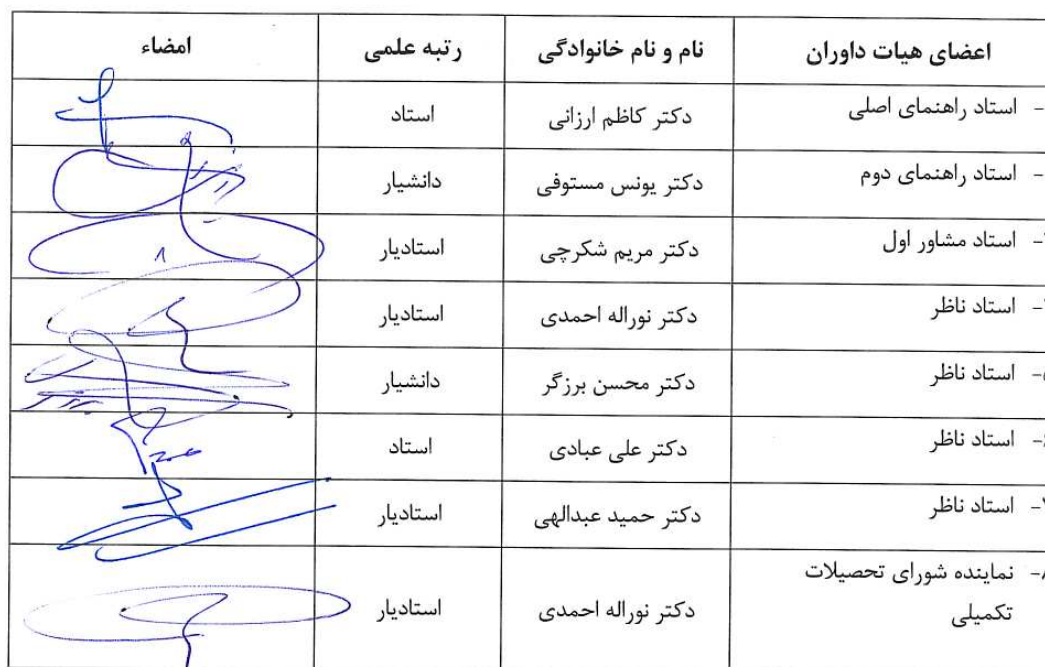 اعضای هیات داوران نام و نام خانوادگی رتبه علمی امضاء
- استاد راهنمای اصلی دکتر کاظم ارزانی استاد
- استاد راهنمای دوم دکتر یونس مستوفی دانشیار
- استاد مشاور اول دکتر مریم شکرچی استادیار
- استاد ناظر دکتر نوراله احمدی استادیار
- استاد ناظر دکتر محسن برزگر دانشیار
- استاد ناظر دکتر علی عبادی استاد
- استاد ناظر دکتر حمید عبدالهی استادیار
- نماینده شورای تحصیلات
تکمیلی دکتر نوراله احمدی استادیار